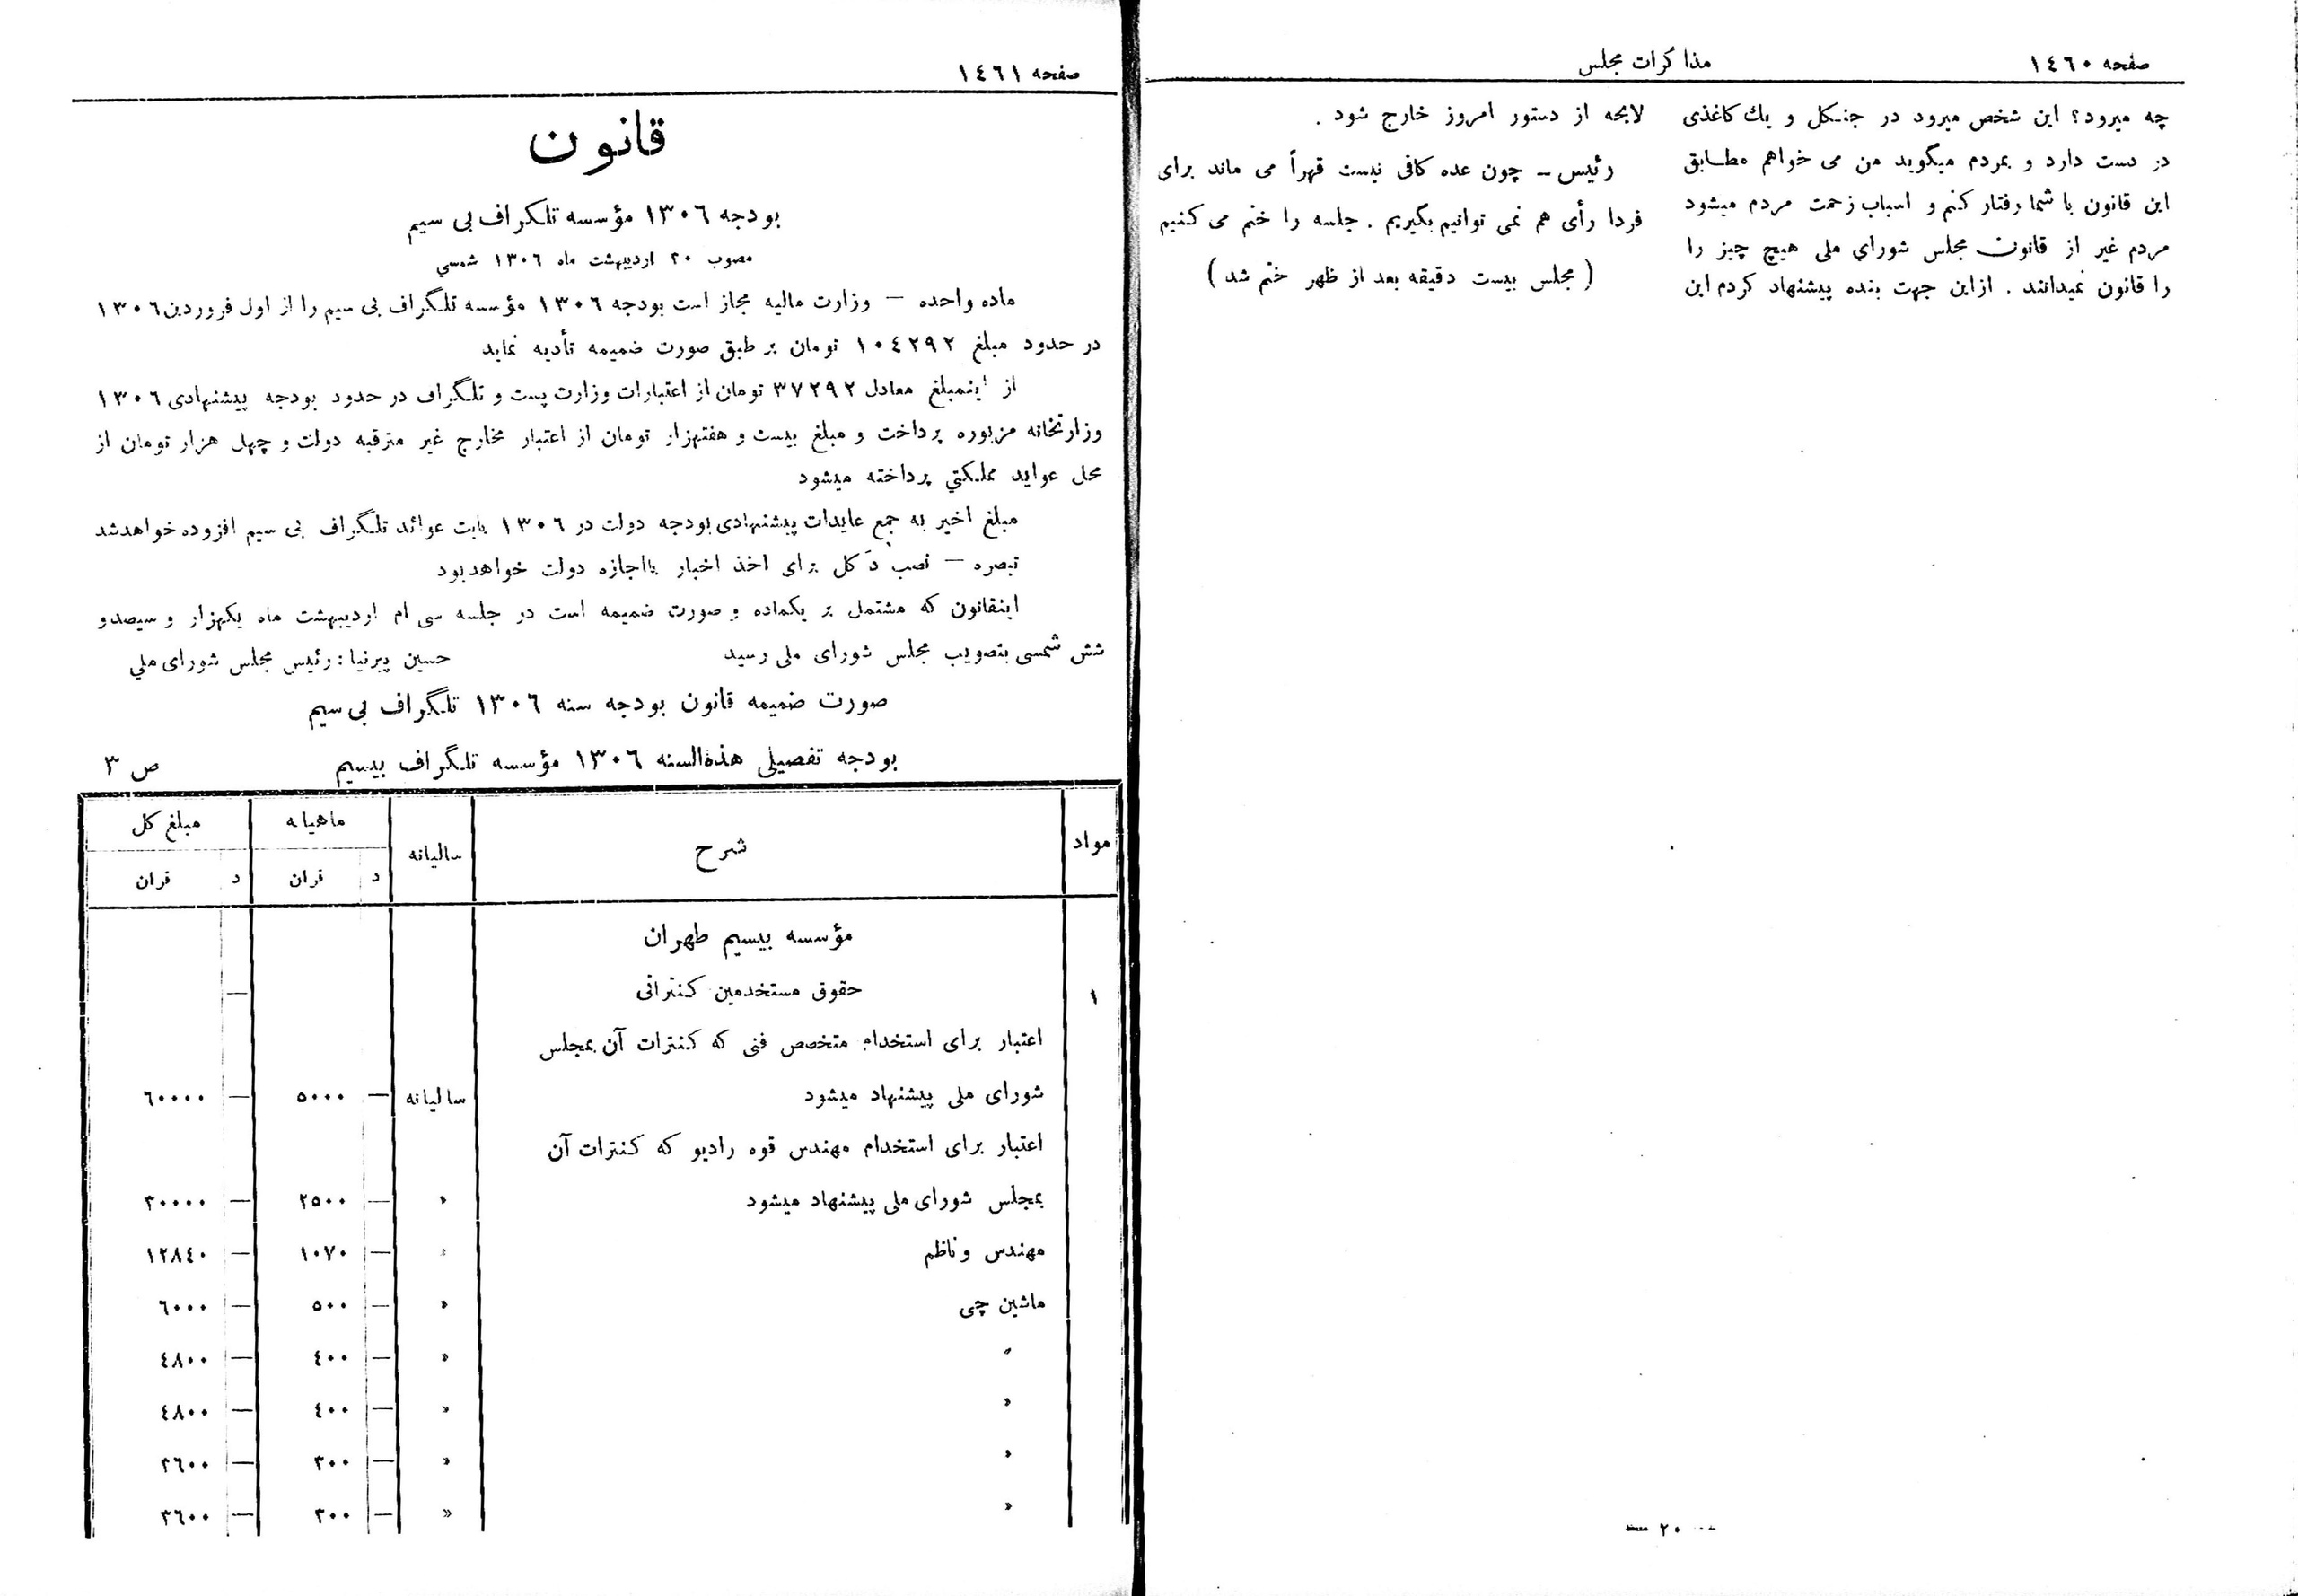 صفحه ١٤٦٠
مذاکرات مجلس
چه میرود؟ این شخص میرود در جنگل و یك کاغذی
در دست دارد و بمردم میگوید من می خواهم مطابق
این قانون با شما رفتار کنم و اسباب زحمت مردم میشود
مردم غیر از قانون مجلس شورای ملی هیچ چیز را
را قانون نمیدانند . ازاین جهت بنده پیشنهاد کردم این
لایحه از دستور امروز خارج شود .
رئیس ـ چون عده کافی نیست قهراً می ماند برای
فردا رأی هم نمی توانیم بگیریم . جلسه را ختم می کنیم
( مجلس بیست دقیقه بعد از ظهر ختم شد )
— ٢٠ —
صفحه ١٤٦١
قانون
بودجه ١٣٠٦ مؤسسه تلگراف بی سیم
مصوب ٣٠ اردیبهشت ماه ١٣٠٦ شمسي
ماده واحده — وزارت مالیه مجاز است بودجه ١٣٠٦ مؤسسه تلگراف بی سیم را از اول فروردین١٣٠٦
در حدود مبلغ ١٠٤٢٩٢ تومان بر طبق صورت ضمیمه تأدیه نماید
از اینمبلغ معادل ٣٧٢٩٢ تومان از اعتبارات وزارت پست و تلگراف در حدود بودجه پیشنهادی ١٣٠٦
وزارتخانه مزبوره پرداخت و مبلغ بیست و هفتهزار تومان از اعتبار مخارج غیر مترقبه دولت و چهل هزار تومان از
محل عواید مملکتي پرداخته میشود
مبلغ اخیر به جمع عایدات پیشنهادی بودجه دولت در ١٣٠٦ بابت عوائد تلگراف بی سیم افزوده خواهدشد
تبصره — نصب دَکل برای اخذ اخبار بااجازه دولت خواهدبود
اینقانون که مشتمل بر یکماده و صورت ضمیمه است در جلسه سی ام اردیبهشت ماه یکهزار و سیصدو
شش شمسی بتصویب مجلس شورای ملی رسید حسین پیرنیا : رئیس مجلس شورای ملي
صورت ضمیمه قانون بودجه سنه ١٣٠٦ تلگراف بی سیم
بودجه تفصیلی هذهالسنه ١٣٠٦ مؤسسه تلگراف بیسیم ص ٣
مواد شرح سالیانه ماهیانه مبلغ کل
د قران د قران
مؤسسه بیسیم طهران
١ حقوق مستخدمین کنتراتی —
اعتبار برای استخدام متخصص فنی که کنترات آن بمجلس
شورای ملی پیشنهاد میشود سالیانه — ٥٠٠٠ — ٦٠٠٠٠
اعتبار برای استخدام مهندس قوه رادیو که کنترات آن
بمجلس شورای ملی پیشنهاد میشود » — ٢٥٠٠ — ٣٠٠٠٠
مهندس و ناظم » — ١٠٧٠ — ١٢٨٤٠
ماشین چی » — ٥٠٠ — ٦٠٠٠
» » — ٤٠٠ — ٤٨٠٠
» » — ٤٠٠ — ٤٨٠٠
» » — ٣٠٠ — ٣٦٠٠
» » — ٣٠٠ — ٣٦٠٠